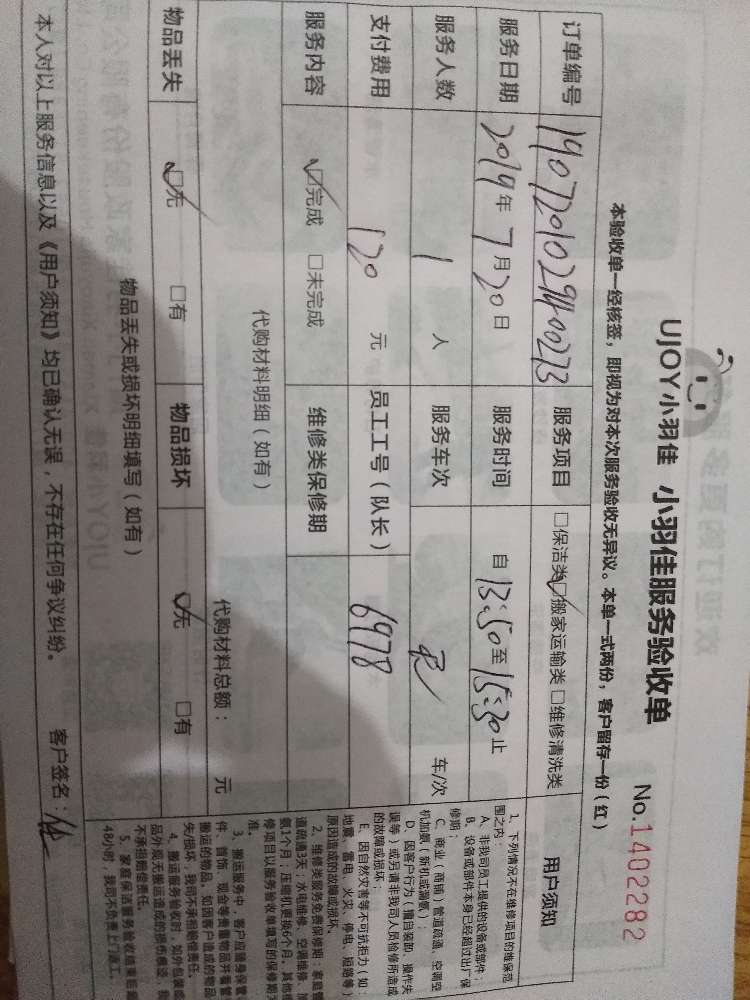 UJOY小羽佳 小羽佳服务验收单 No.1402282
本验收单一经核签，即视为对本次服务验收无异议。本单一式两份，客户留存一份（红）
订单编号 1907201029400273 服务项目 □保洁类☑搬家运输类□维修清洗类
服务日期 2019年7月20日 服务时间 自13:50至15:30止
服务人数 1人 服务车次 车/次
支付费用 120元 员工工号（队长） 6978
服务内容 ☑完成 □未完成 维修类保修期
代购材料明细（如有）
代购材料总额： 元
物品丢失 ☑无 □有 物品损坏 ☑无 □有
物品丢失或损坏明细填写（如有）
本人对以上服务信息以及《用户须知》均已确认无误，不存在任何争议纠纷。 客户签名：
用户须知
1、下列情况不在维修项目的维保范
围之内：
A、非我司员工提供的设备或部件；
B、设备或部件本身已经超过出厂保
修期；
C、商业（商铺）管道疏通、空调空
机加氨（新机或漏氨）；
D、因客户行为（擅自装卸、操作失
误等）或另请非我司人员检修所造成
的故障或损坏；
E、因自然灾害等不可抗拒力（如：
地震、雷电、火灾、停电、短路等）
原因造成的故障或损坏。
2、维修类服务免费保修期：家庭管
道疏通3天；水电维修、空调维修、加
氨1个月；压缩机更换6个月。其他维
修项目以服务验收单填写的保修期为
准。
3、搬运服务中，客户应随身保管
件、首饰、现金等贵重物品并看管
搬运的物品。如因客户造成的物品
失/损坏，我司不承担赔偿责任。
4、搬运服务验收时，如外包装或
品外观无搬运造成的损伤痕迹，我
不承担赔偿责任。
5、家庭保洁服务验收结束后
48小时，我司不负责上门返工。